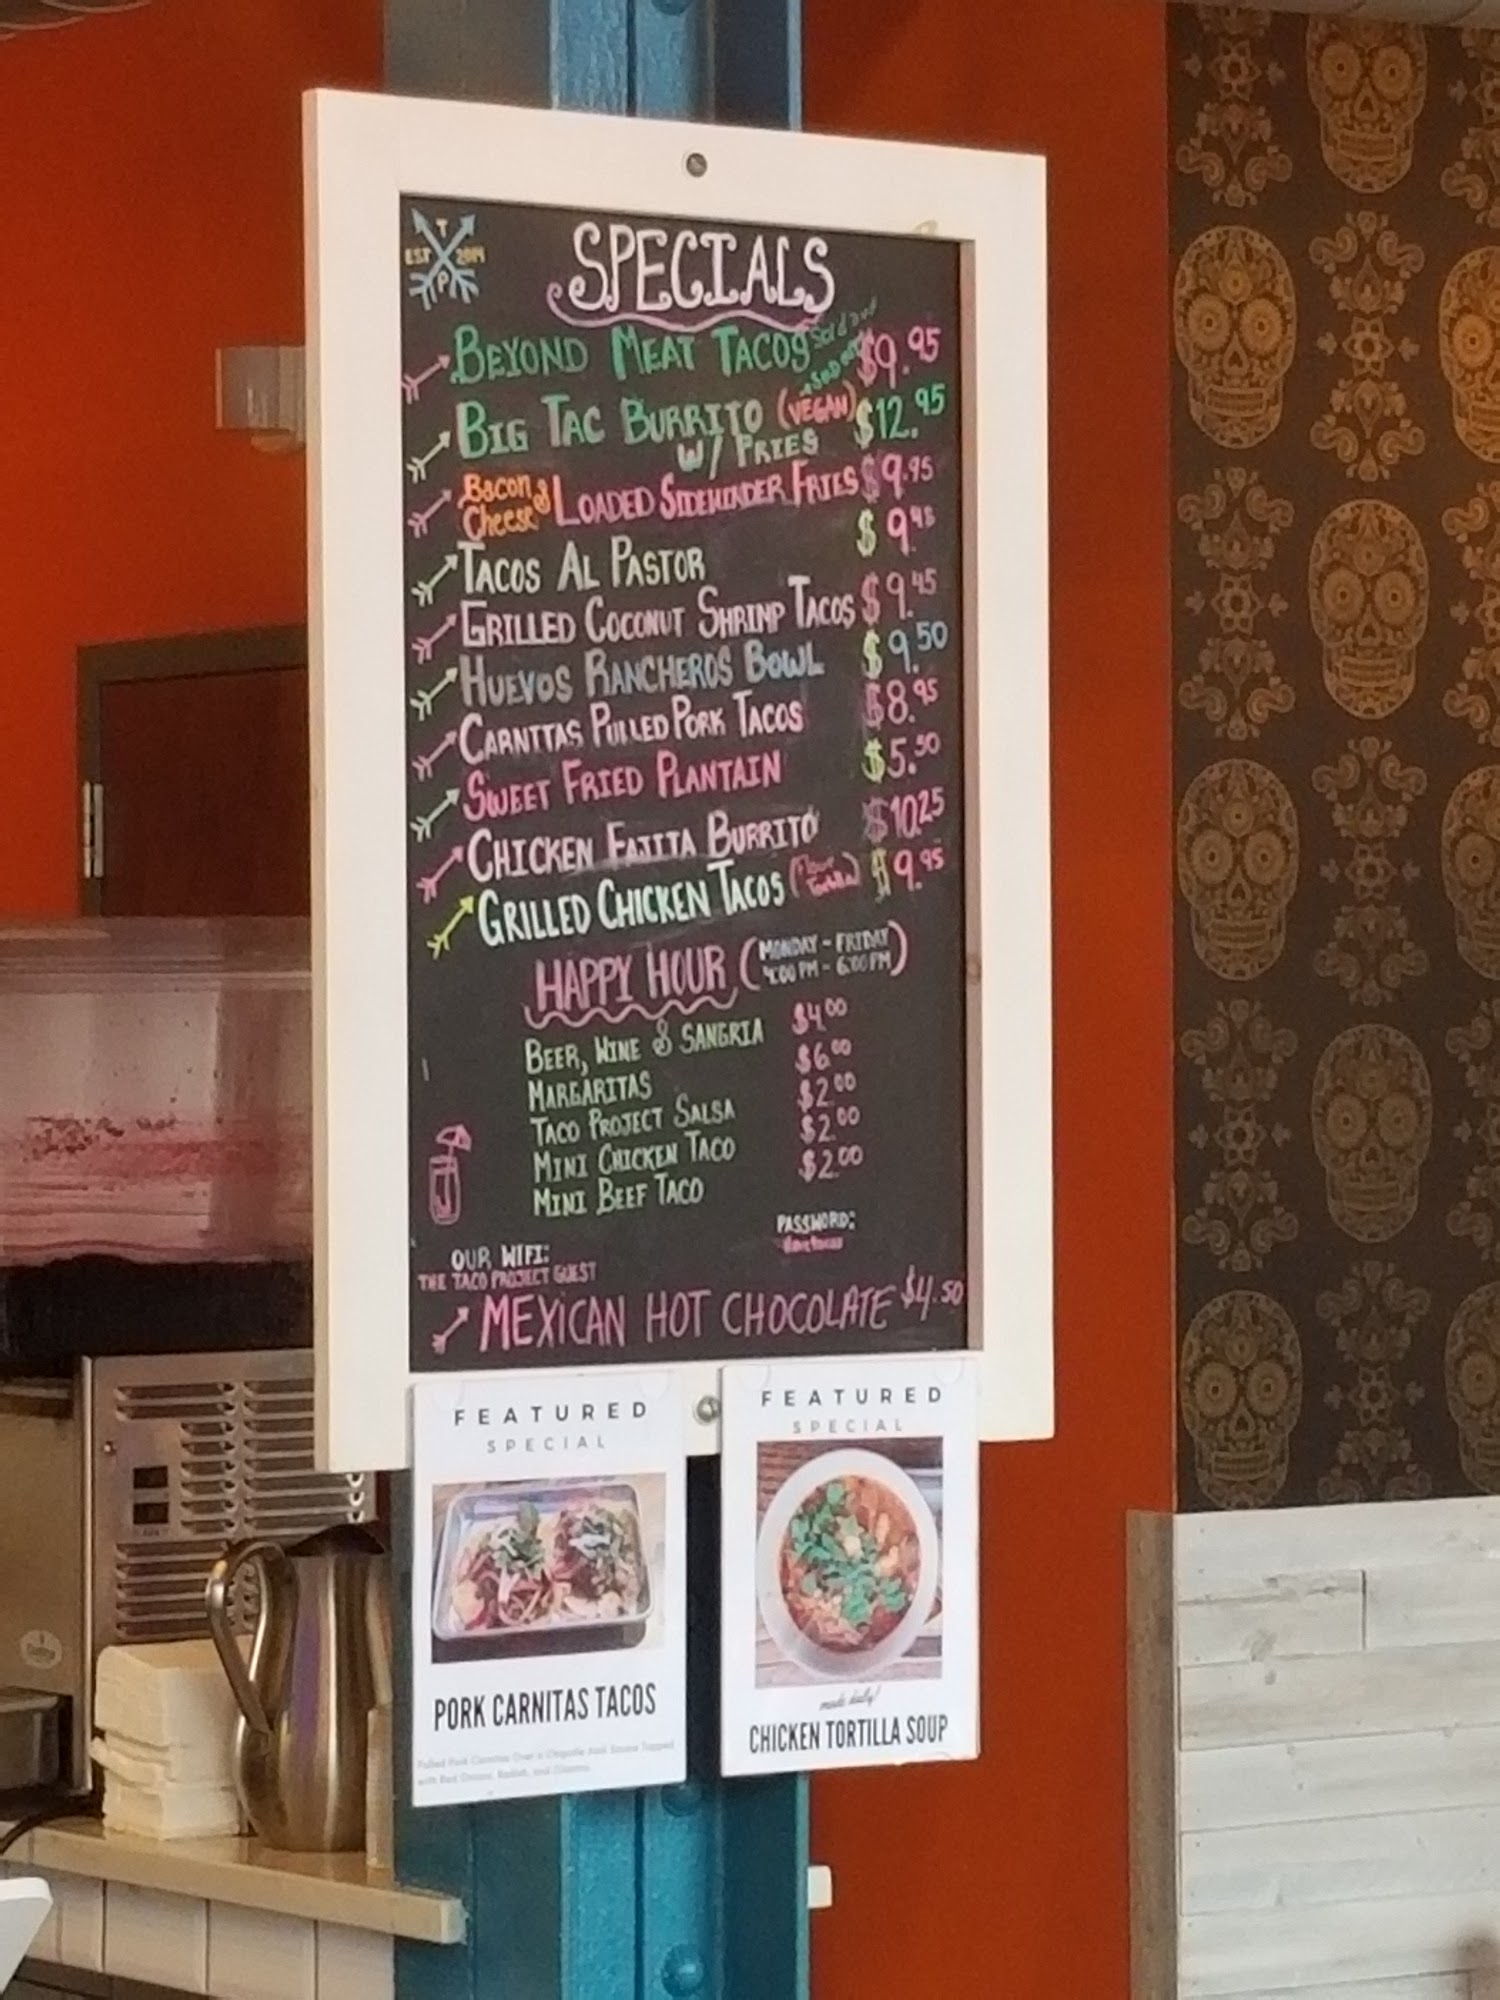 T
EST 2014
P
SPECIALS
BEYOND MEAT TACOS Sold out $9.95
Sold out
BIG TAC BURRITO (VEGAN) $12.95
W/ FRIES
Bacon & Cheese LOADED SIDEWINDER FRIES $9.95
TACOS AL PASTOR $9.45
GRILLED COCONUT SHRIMP TACOS $9.45
HUEVOS RANCHEROS BOWL $9.50
CARNITAS PULLED PORK TACOS $8.95
SWEET FRIED PLANTAIN $5.50
CHICKEN FAJITA BURRITO $10.25
GRILLED CHICKEN TACOS (Flour Tortilla) $9.95
HAPPY HOUR (MONDAY - FRIDAY
4:00 PM - 6:00 PM)
BEER, WINE & SANGRIA $4.00
MARGARITAS $6.00
TACO PROJECT SALSA $2.00
MINI CHICKEN TACO $2.00
MINI BEEF TACO $2.00
OUR WIFI: PASSWORD:
THE TACO PROJECT GUEST
MEXICAN HOT CHOCOLATE $4.50
FEATURED
SPECIAL
PORK CARNITAS TACOS
Pulled Pork Carnitas Over a Chipotle Aioli Sauce Topped
with Red Onions, Radish, and Cilantro
FEATURED
SPECIAL
made daily!
CHICKEN TORTILLA SOUP